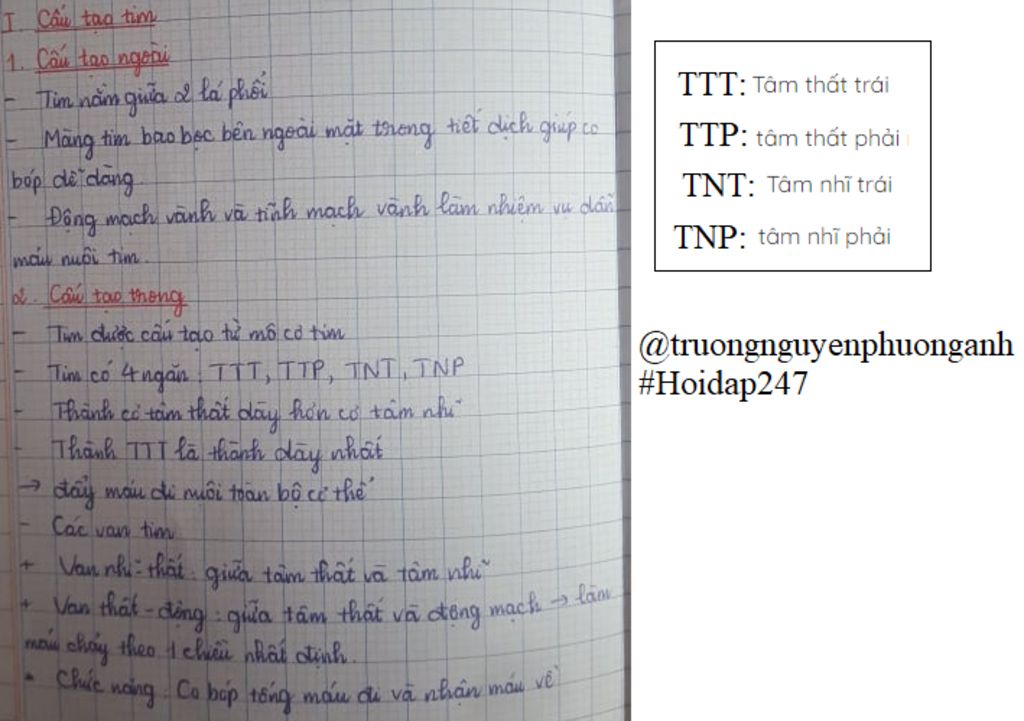 I. Cấu tạo tim
1. Cấu tạo ngoài
- Tim nằm giữa 2 lá phổi
- Màng tim bao bọc bên ngoài mặt trong tiết dịch giúp co
bóp dễ dàng
- Động mạch vành và tĩnh mạch vành làm nhiệm vụ dẫn
máu nuôi tim.
2. Cấu tạo trong
- Tim được cấu tạo từ mô cơ tim
- Tim có 4 ngăn: TTT, TTP, TNT, TNP
- Thành cơ tâm thất dày hơn cơ tâm nhĩ
- Thành TTT là thành dày nhất
→ đẩy máu đi nuôi toàn bộ cơ thể
- Các van tim
+ Van nhĩ-thất: giữa tâm thất và tâm nhĩ
+ Van thất-động: giữa tâm thất và động mạch → làm
máu chảy theo 1 chiều nhất định.
* Chức năng: Co bóp tống máu đi và nhận máu về
TTT: Tâm thất trái
TTP: tâm thất phải
TNT: Tâm nhĩ trái
TNP: tâm nhĩ phải
@truongnguyenphuonganh
#Hoidap247